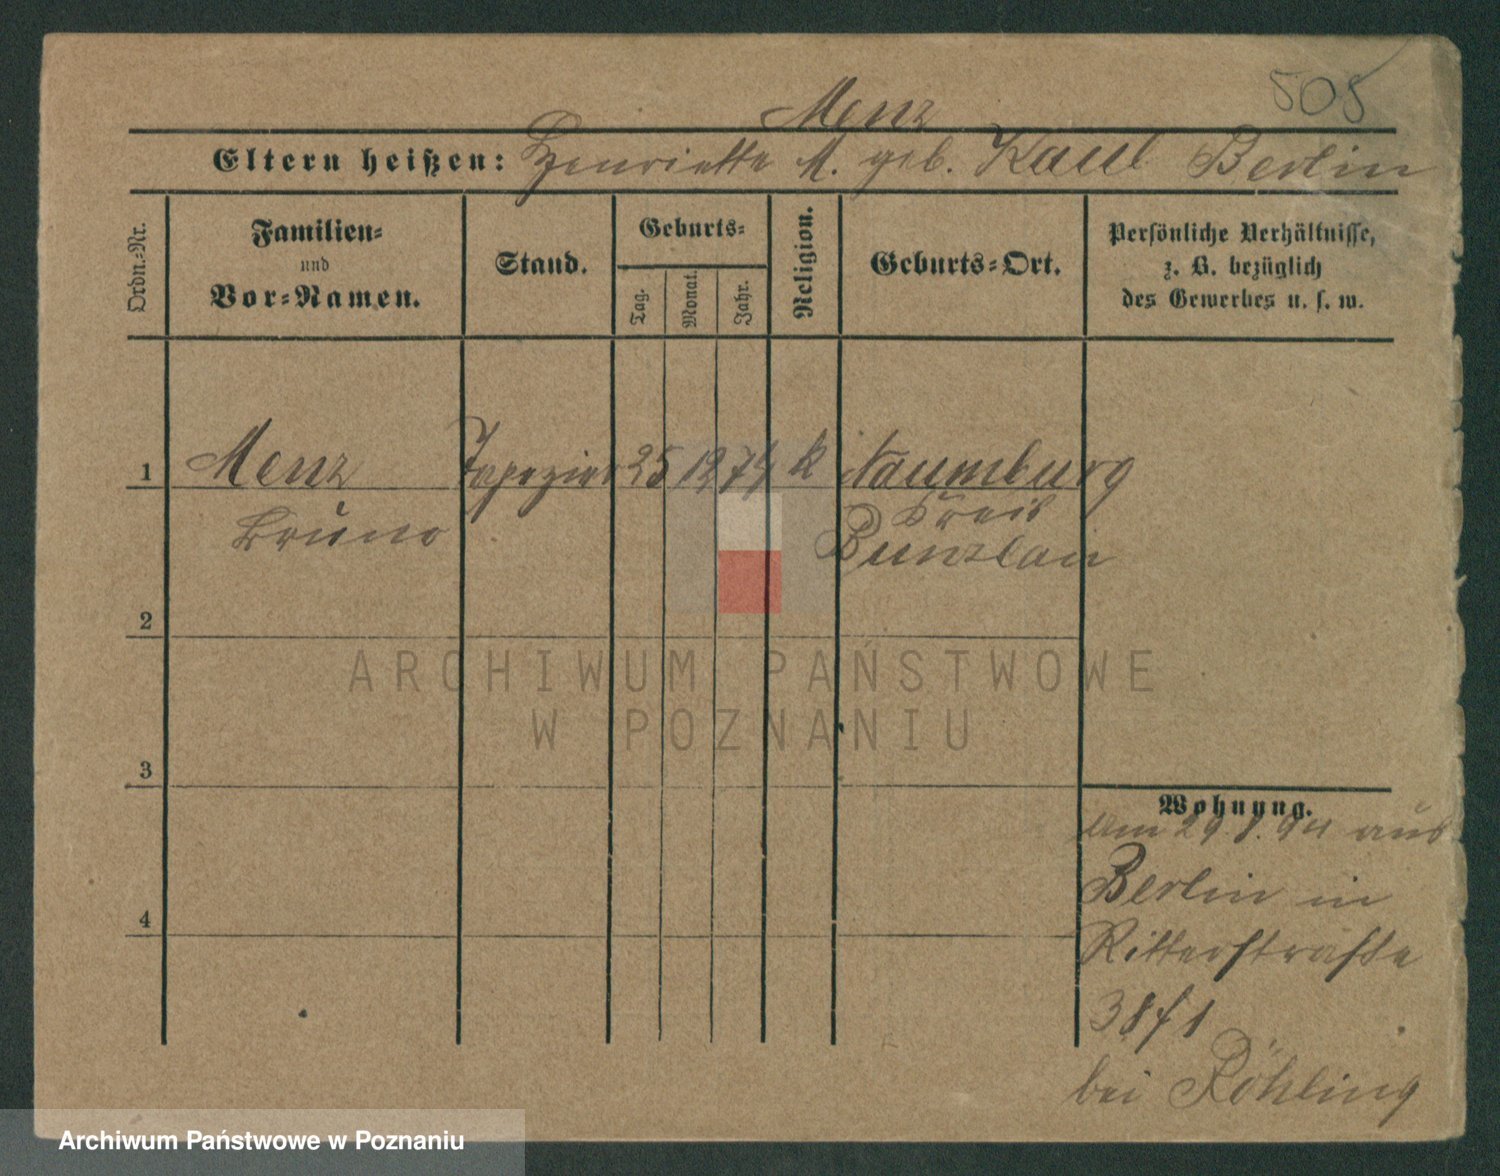 505
Menz
Eltern heißen: Henriette M. geb. Kaul Berlin
Ordn.-Nr.
Familien-
und
Vor-Namen.
Stand.
Geburts-
Tag.
Monat.
Jahr.
Religion.
Geburts-Ort.
Persönliche Verhältnisse,
z. B. bezüglich
des Gewerbes u. s. w.
1 Menz Tapezier 25 12 74 k Naumburg
Bruno Kreis
Bunzlau
2
ARCHIWUM PAŃSTWOWE
W POZNANIU
3
Wohnung.
Am 29. 8. 94 aus
Berlin in
4
Ritterstraße
38 f 1
bei Röhling
Archiwum Państwowe w Poznaniu